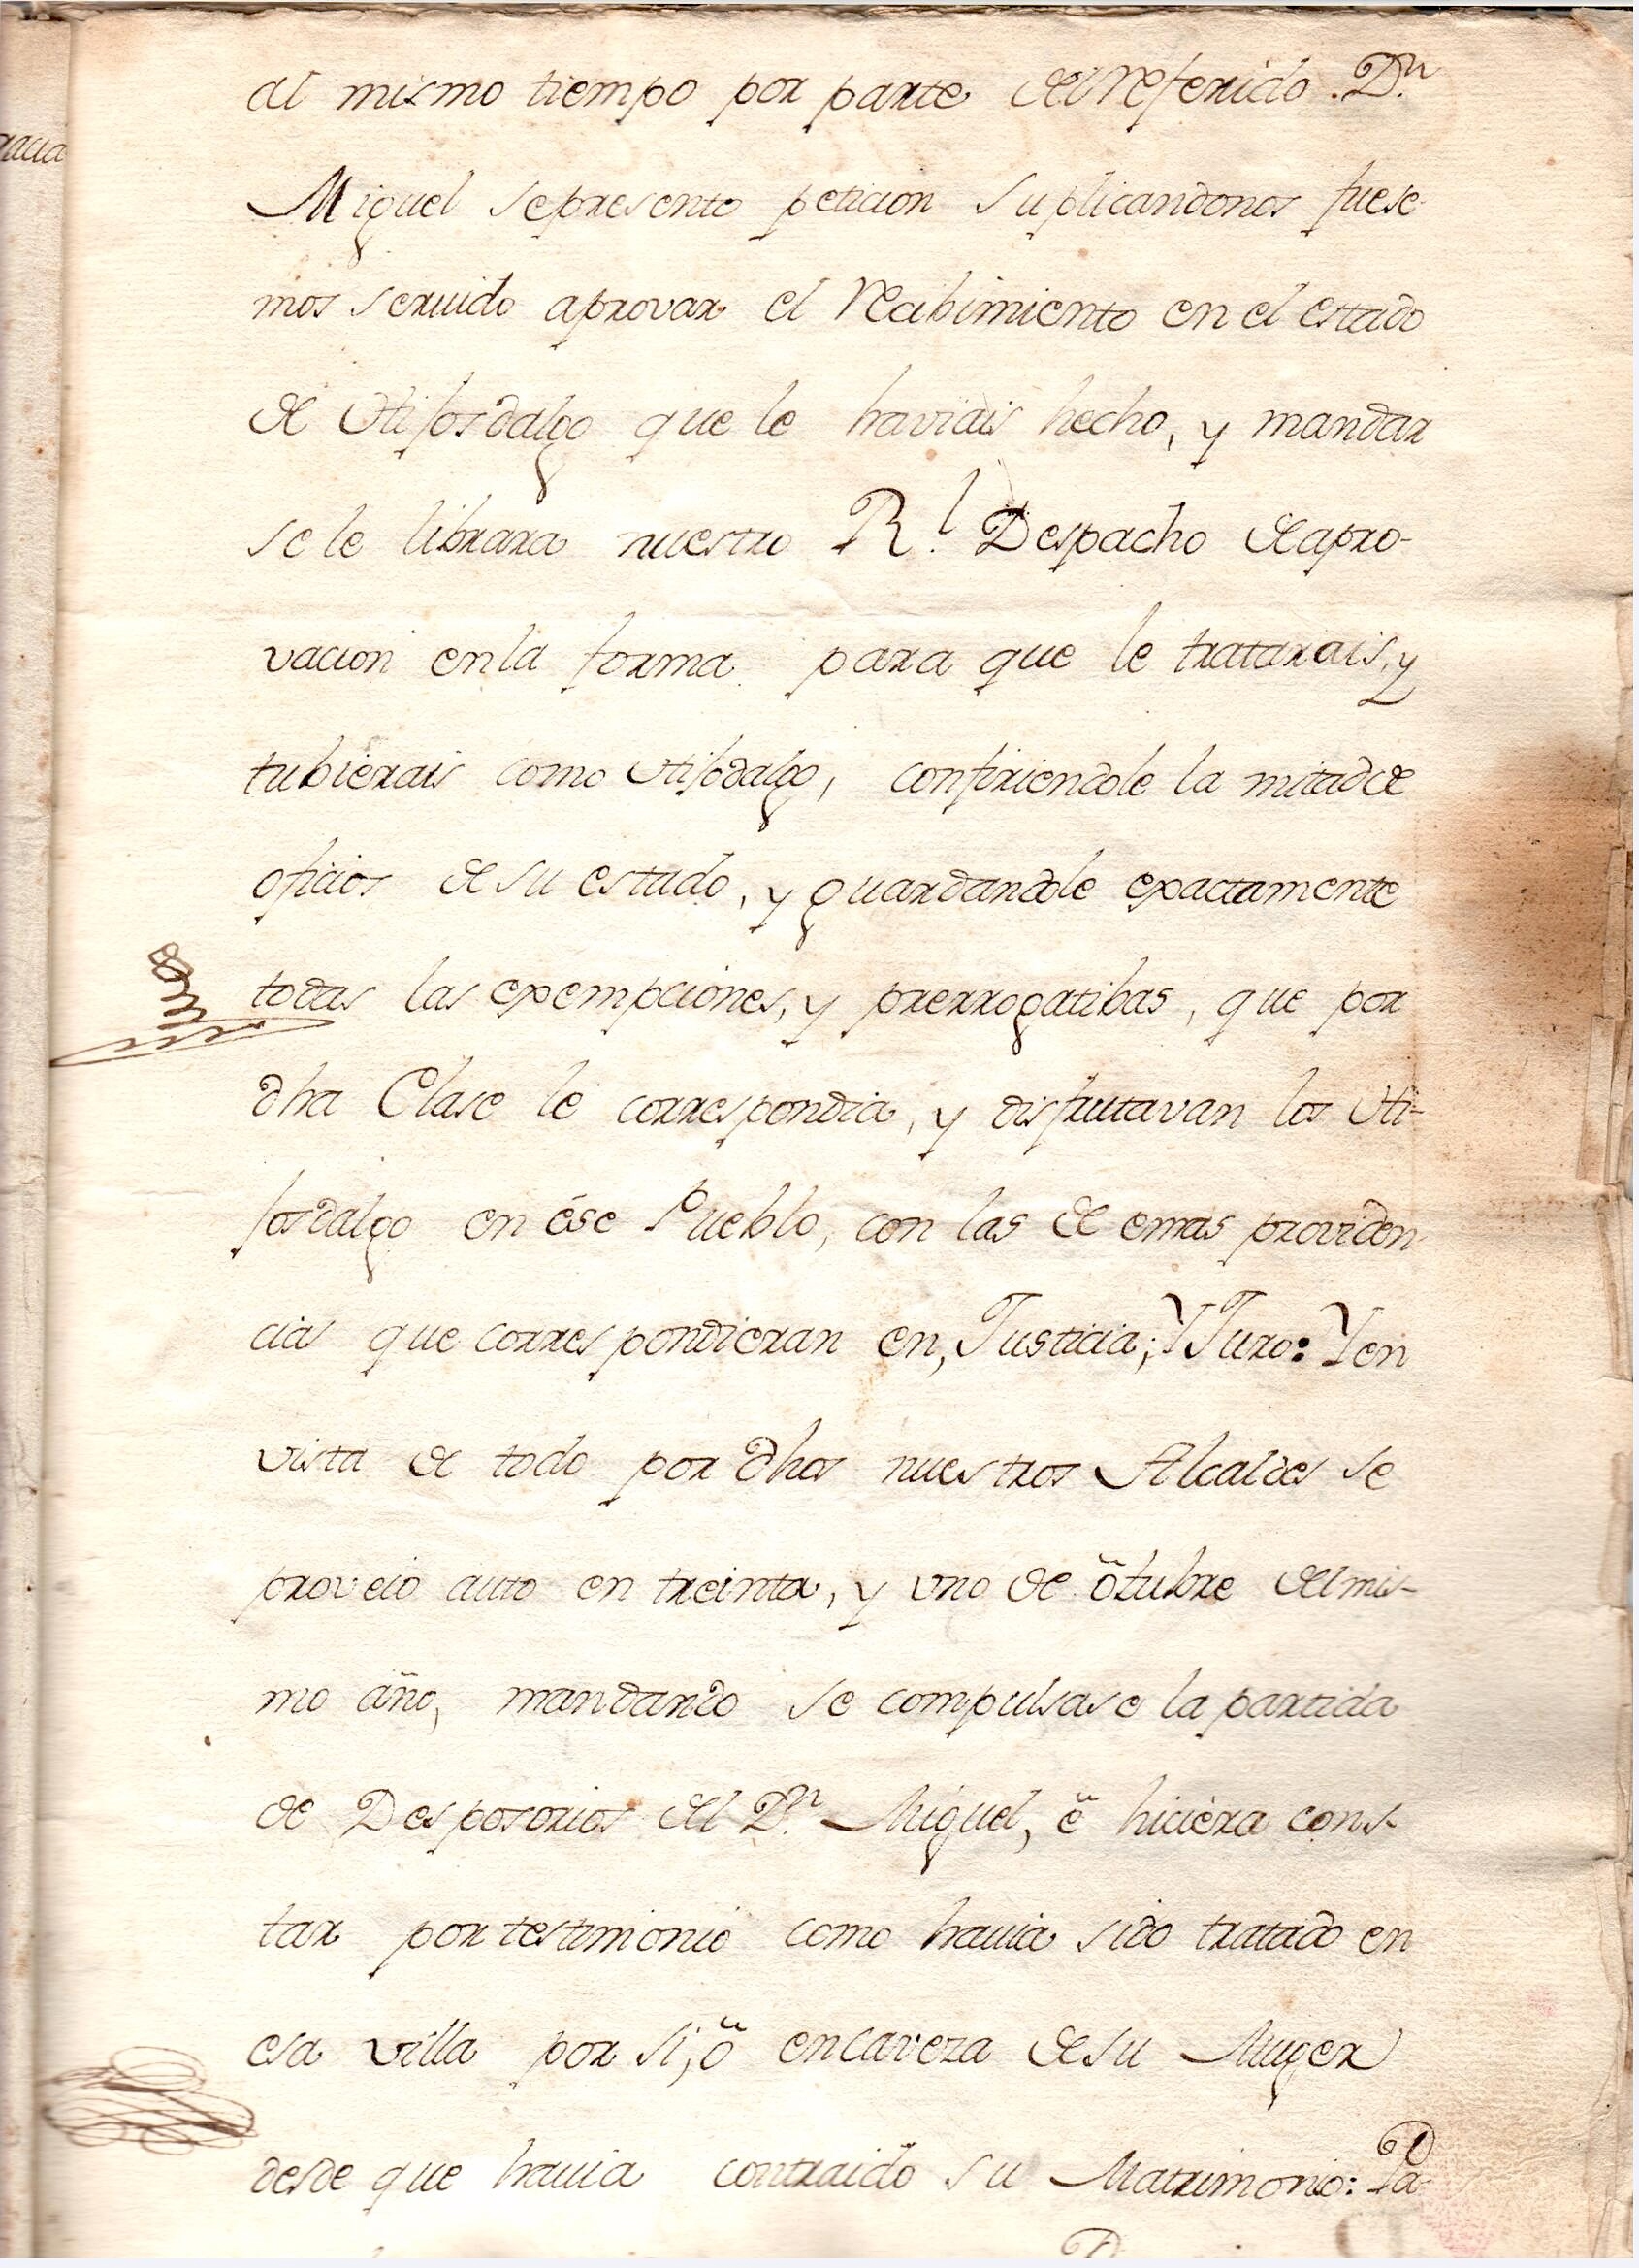 al mismo tiempo por parte del referido Dn.
Miguel se presento peticion suplicandonos fuese
mos seruido aprovar el recibimiento en el estado
de Hijosdalgo que le haviais hecho, y mandar
se le librara nuestro Rl. Despacho de apro-
vacion en la forma para que le tratarais, y
tubierais como Hijodalgo, confiriendole la mitad de
oficios de su estado, y guardandole exactamente
todas las exempciones, y prerrogatibas, que por
dha Clase le correspondia, y disfrutavan los Hi-
josdalgo en ése Pueblo, con las de emas providen
cias que correspondieran en Justicia; Y Juro: Y en
vista de todo por dhos nuestros Alcaldes se
proveió auto en treinta, y vno de õtubre del mis-
mo año, mandando se compulsase la partida
de Desposorios del Dn. Miguel, ẽ hiciera cons-
tar por testimonio como hauia sido tratado en
esa villa por si, õ en caveza de su Muger
desde que hauia contraido su Matrimonio: Pa